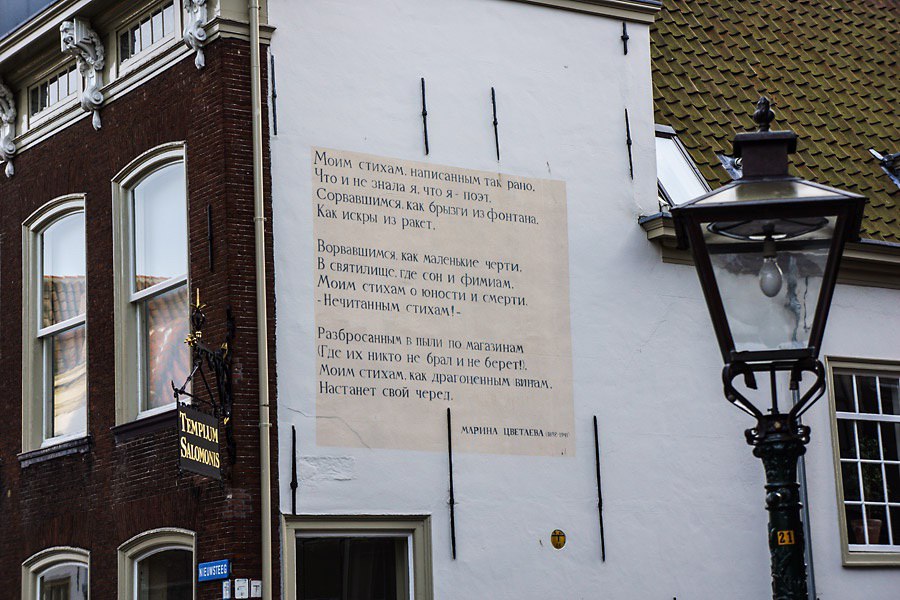 Моим стихам, написанным так рано,
Что и не знала я, что я - поэт,
Сорвавшимся, как брызги из фонтана,
Как искры из ракет,
Ворвавшимся, как маленькие черти,
В святилище, где сон и фимиам,
Моим стихам о юности и смерти,
- Нечитанным стихам! -
Разбросанным в пыли по магазинам
(Где их никто не брал и не берет!),
Моим стихам, как драгоценным винам,
Настанет свой черед.
МАРИНА ЦВЕТАЕВА (1892-1941)
TEMPLUM
SALOMONIS
NIEUWSTEEG
21